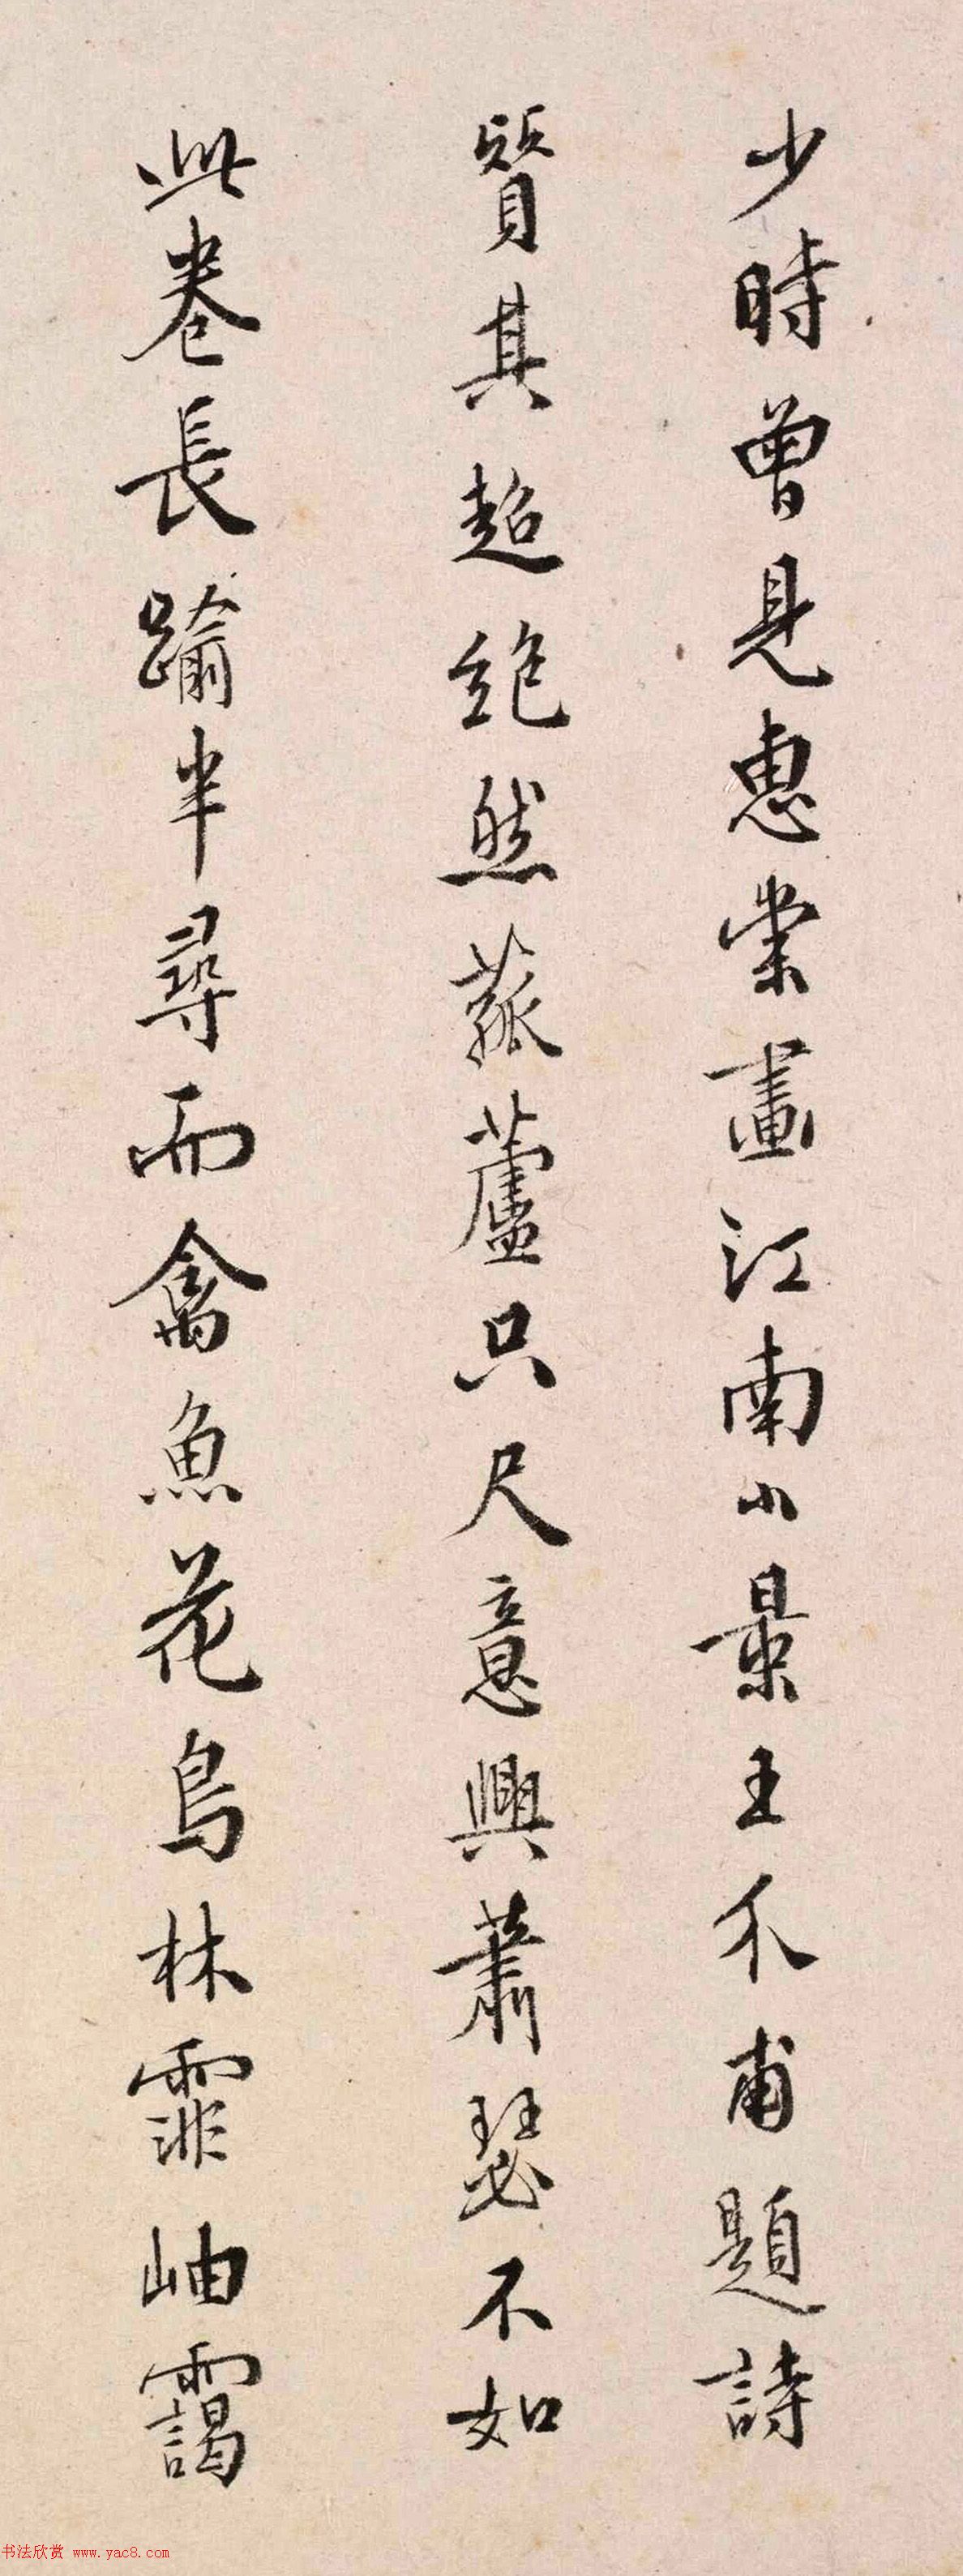 少時曾見惠崇畫江南小景王介甫題詩
賢其超絶然菰蘆只尺意興蕭瑟不如
此卷長踰半尋而禽魚花鳥林霏岫靄
书法欣赏 www.yac8.com